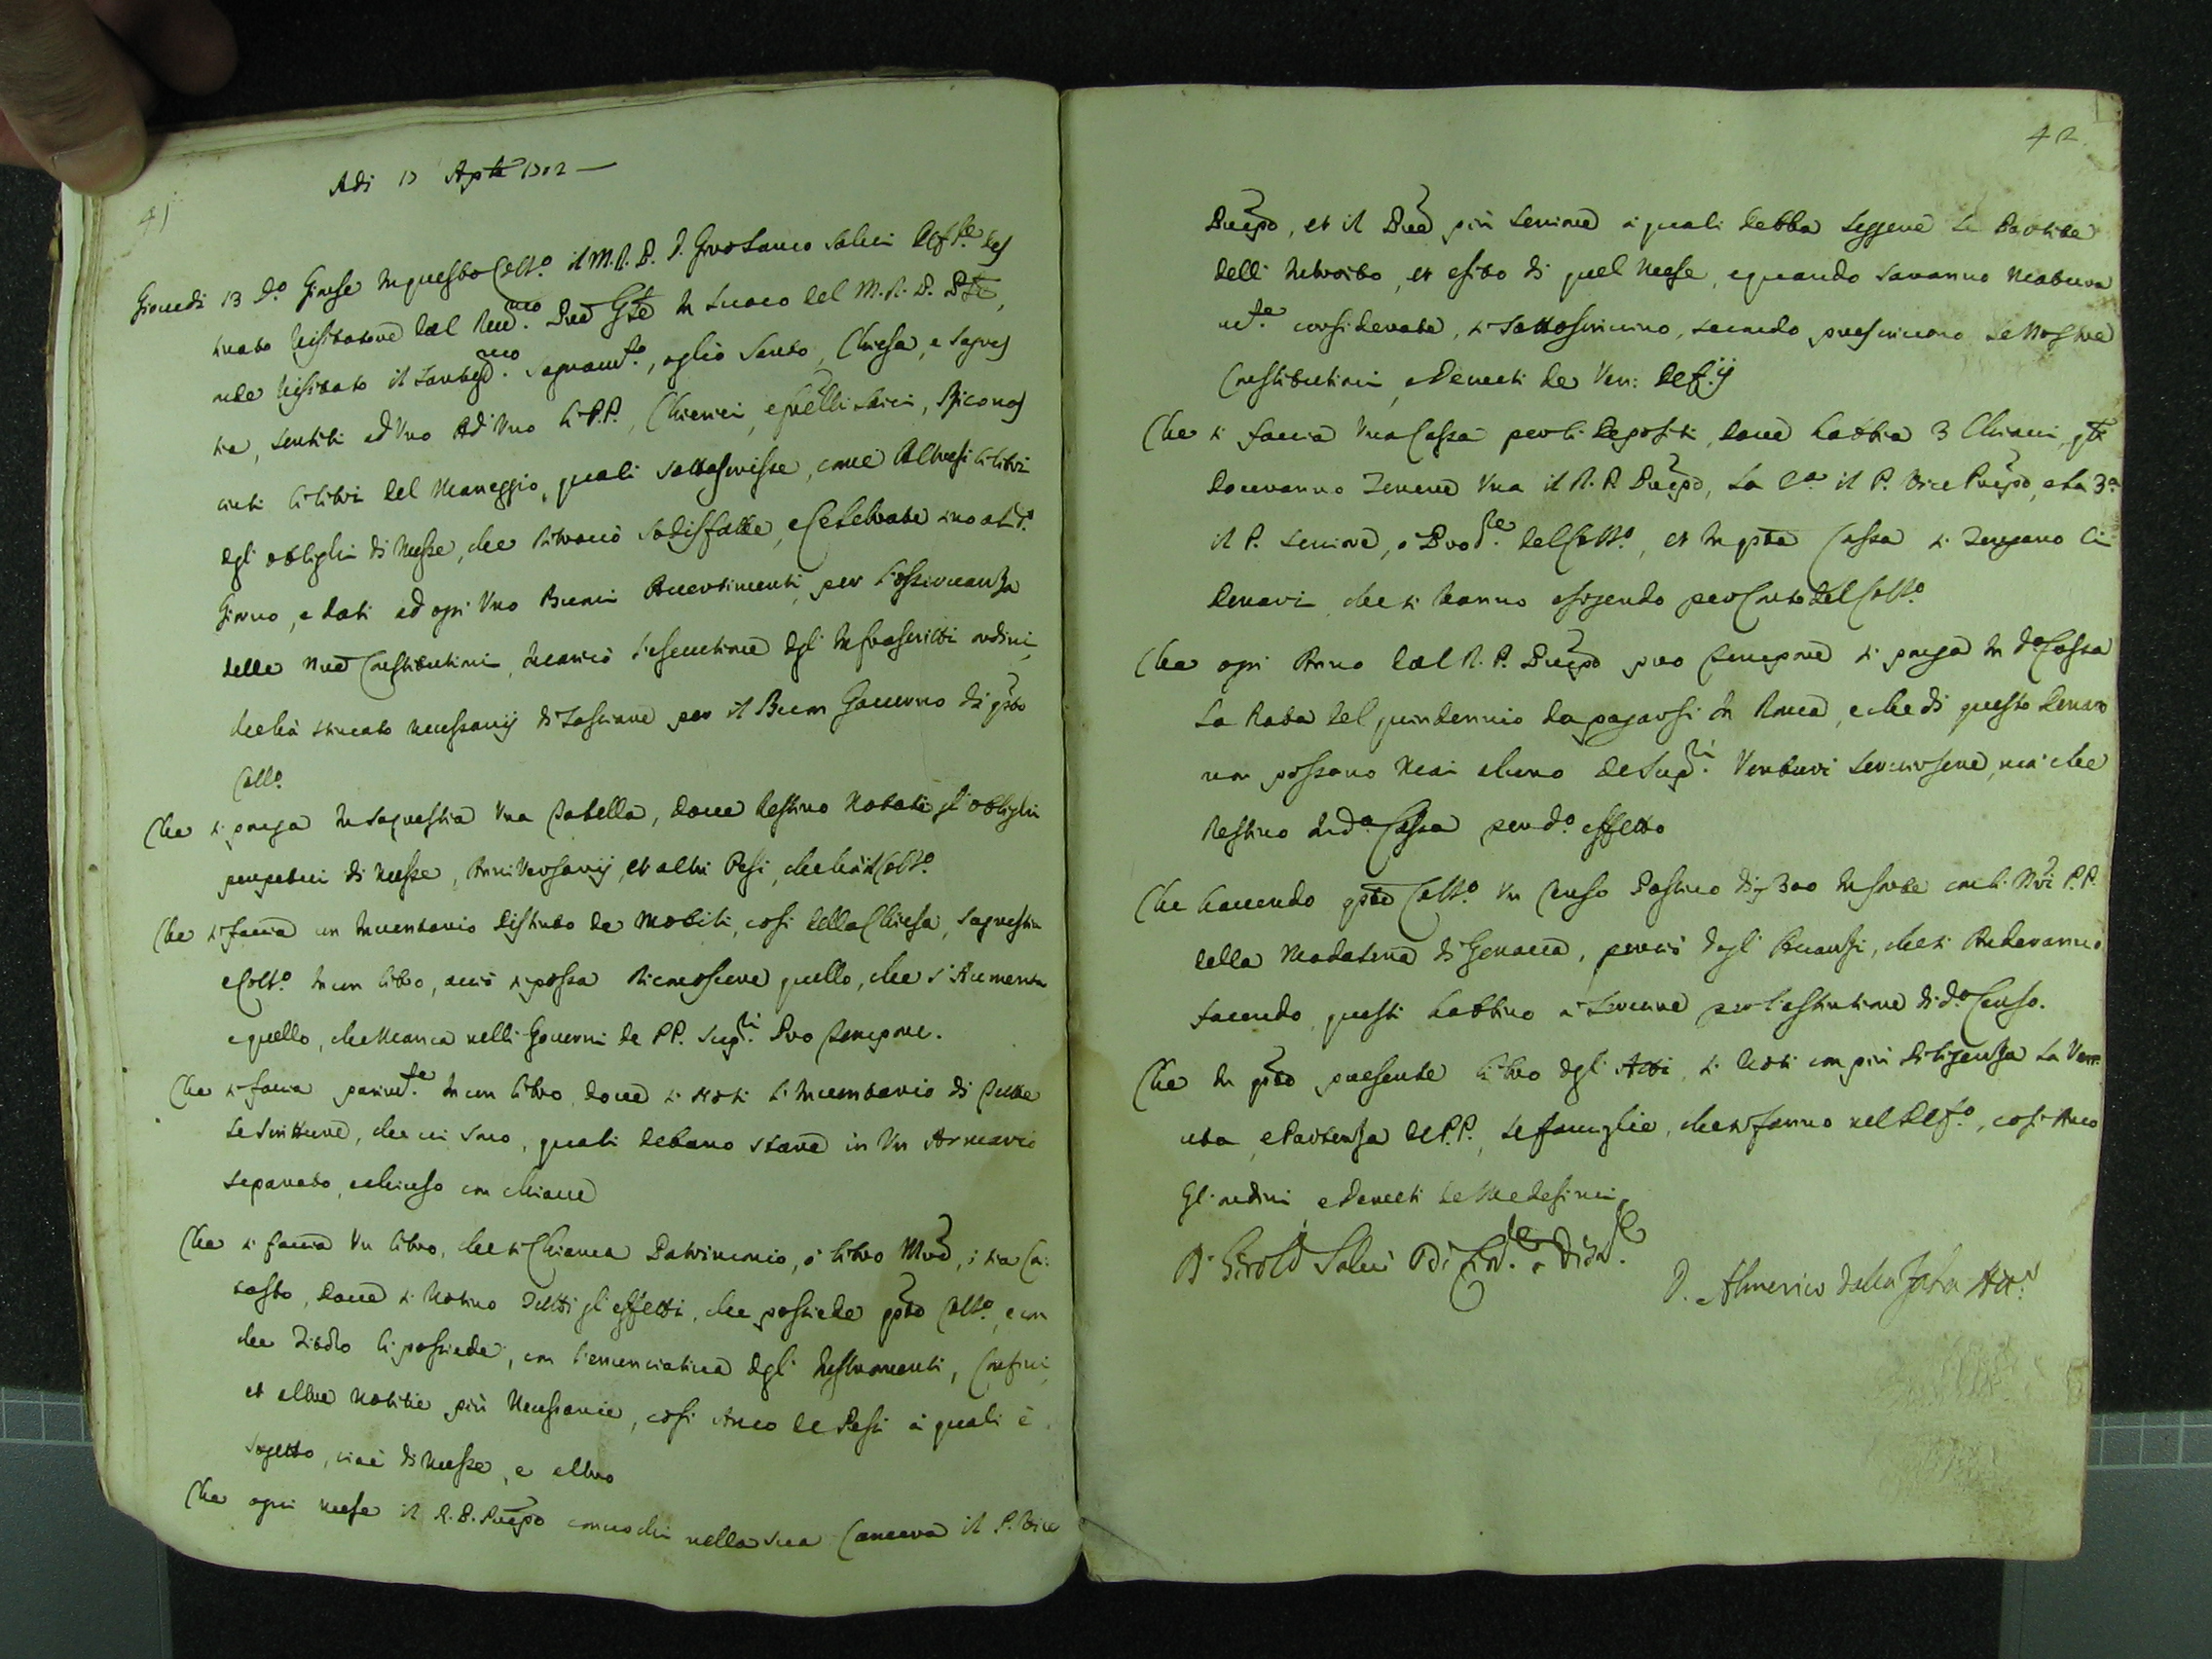 41
Adi 13 Aple 1702
Giovedi 13 do. Giunse in questo Collo. il M.R.P. D. Girolamo Salici Deffre. des
tinato visitatore dal Revmo. Pre Gnle in luoco del M.R.P.
onde visitato il Santissmo. Sagramto., oglio Santo, Chiesa, e Sagres
tia, sentiti ad Uno Ad Uno li P.P., Chierici, e frelli laici, Riconos
ciuti li libri del Maneggio, quali sottoscrisse, come Altresi li libri
degl' oblighi di Messe, che ritrovò sodisfatte, e Celebrate sino al do.
Giorno, e dati ad ogni Uno Buoni Avertimenti, per l'osservanza
delle nre Constitutioni, incaricò l'essecutione degl' Infrascritti ordini,
che hà stimato necessarij di lasciare per il Buon Governo di qsto
Collo.
Che si ponga in Sagrestia Una Tabella, dove restino Notati gl' oblighi
perpetui di Messe, Anniversarij, et altri Pesi, che hà il Collo.
Che si faccia un Inventario distinto de Mobili, così della Chiesa, Sagrestia
e Collo. in un libro, acciò si possa riconoscere quello, che s'Aumenta
e quello, che Manca nelli Governi de PP. Supri. Pro tempore.
Che si faccia parimte. in un libro, dove si Noti l'Inventario di Tutte
le Scritture, che vi sono, quali debano stare in Un Armario
separato, e chiuso con chiave
Che si faccia Un libro, che si Chiama Patrimonio, ò libro Mre, ò sia Ca:
tasto, dove si Notino Tutti gl' effetti, che possiede qsto Collo., e con
che Titolo li possiede, con l'enunciativa degl' Instromenti, Confini,
et altre Notitie più Necessarie, così Anco de Pesi à quali è
sogetto, cioè di Messe, e altro
Che ogni mese il R.P. Prepo convochi nella sua Camera il P. Vice
42
Prepo, et il Pre più Seniore à quali debba leggere le Partite
delli Introito, et esito di quel Mese, e quando saranno Matura
mte. considerate, si sottoscrivino, secondo prescrivono le Nostre
Constitutioni, e Decreti de Ven: Deff.ij
Che si faccia Una Cassa per li depositi, dove habbia 3 Chiavi, qli
doveranno Tenere Una il R.P. Prepo, la 2a. il P. Vice Prepo, e la 3a
il P. Seniore, o Prore. del Collo., et in qsta Cassa si Tengano li
denari, che si vanno esigendo per Conto del Collo.
Che ogni Anno dal R.P. Prepo pro tempore si ponga in da. Cassa
la Rata del quindennio da pagarsi in Roma, e che di questo denaro
non possano Mai alcuno de Supri. Venturi servirsene, mà che
restino in da. Cassa per do. effetto
Che havendo qsto Collo. Un Censo Passivo di 300 in sorte con li Nri P.P.
della Madalena di Genova, perciò degl' Avanzi, che si Anderanno
facendo, questi habbino à servire per l'estintione di do. Censo.
Che in qsto presente libro degl' Atti, si Noti con più diligenza la Ven:
uta, e Partenza de P.P., le famiglie, che si fanno nel Deffo., così Anco
gl' ordini e Decreti de Medesimi
D. Girolo. Salici
D. Almerico della Atto.